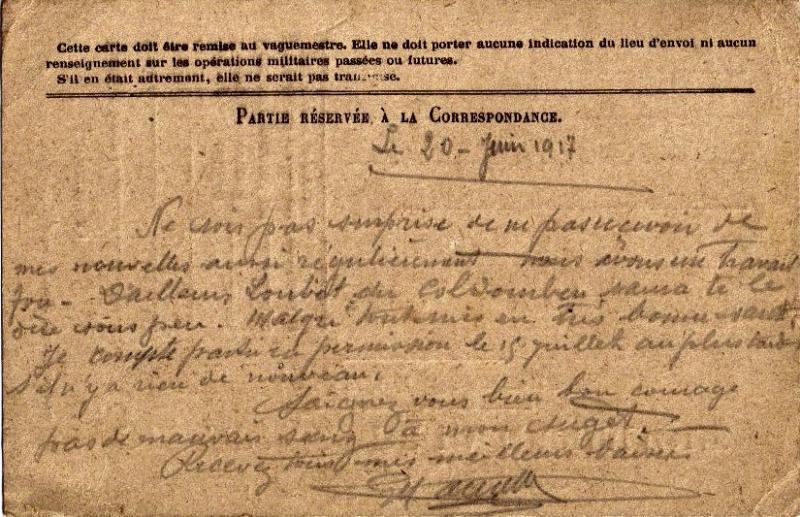 Cette carte doit être remise au vaguemestre. Elle ne doit porter aucune indication du lieu d'envoi ni aucun
renseignement sur les opérations militaires passées ou futures.
S'il en était autrement, elle ne serait pas transmise.
PARTIE RÉSERVÉE À LA CORRESPONDANCE.
Le 20 - Juin 1917
Ne sois pas surprise de ne pas recevoir de
mes nouvelles aussi régulièrement nous avons un travail
fou - D'ailleurs Loubet du saura te le
dire sous peu. Malgré tout suis en très bonne santé
Je compte partir en permission le 15 juillet au plus tard
S'il n'y a rien de nouveau.
Soignez vous bien bon courage
pas de mauvais sang à mon suget.
Recevez tous mes meilleurs baisers